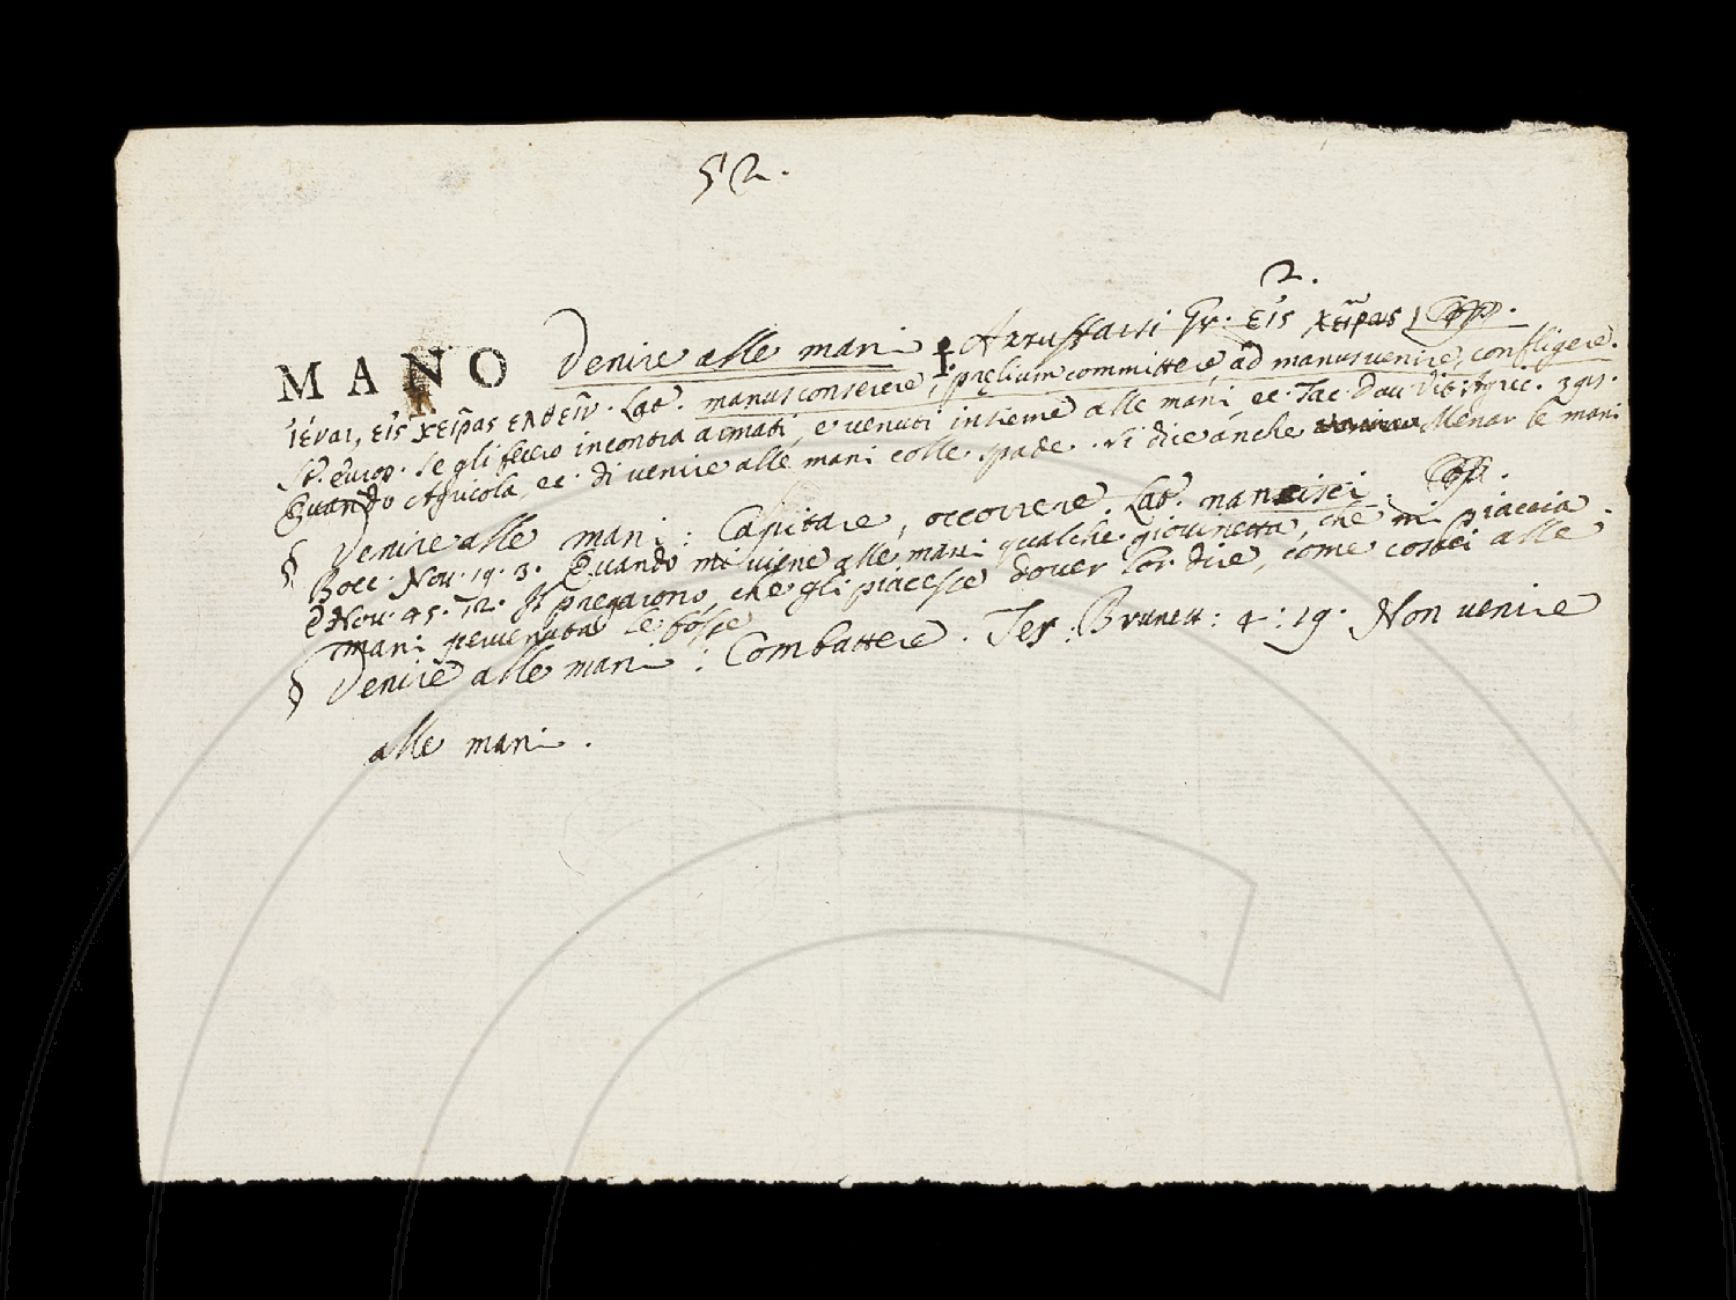 52.
2.
MANO Venire alle mani Azzuffarsi Gr. εἰς χεῖρας
ἰέναι, εἰς χεῖρας ελθεῖν. Lat. manus conserere, pręlium committere, ad manus venire, confligere.
St. Europ. se gli fecero incontra armati, e venuti insieme alle mani, ec. Tac. Dav. Vit. Agric. 398.
Quando Agricola, ec. di venire alle mani colle spade. Si dice anche Menar le mani
§ Venire alle mani: Capitare, occorrere. Lat. nancisci.
Bocc. Nov. 19. 3. Quando mi viene alle mani qualche giovinetta, che mi piaccia.
E Nov. 45. 12. Il pregarono, che gli piacesse dover lor dire, come costei alle
mani pervenuta le fosse
§ Venire alle mani: Combattere. Tes. Brunett: 4: 19. Non venire
alle mani.